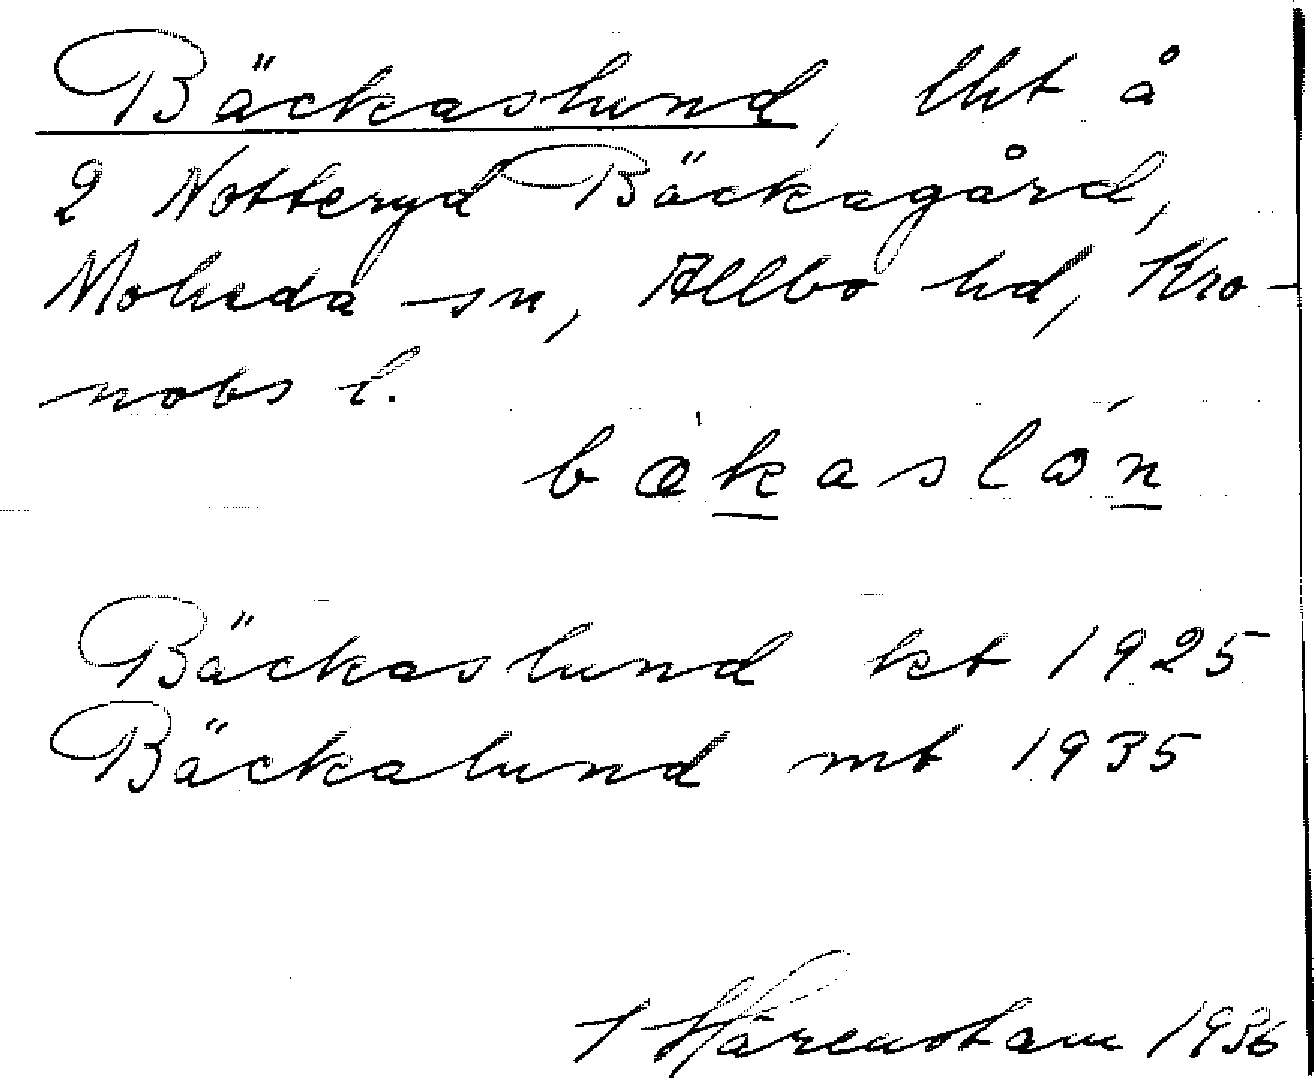 Bäckaslund, lht å
2 Notteryd Bäckagård,
Moheda sn, Allbo hd, Kro-
nobs l.
bækaslón
Bäckaslund kt 1925
Bäckalund mt 1935
I Hårenstam 1936